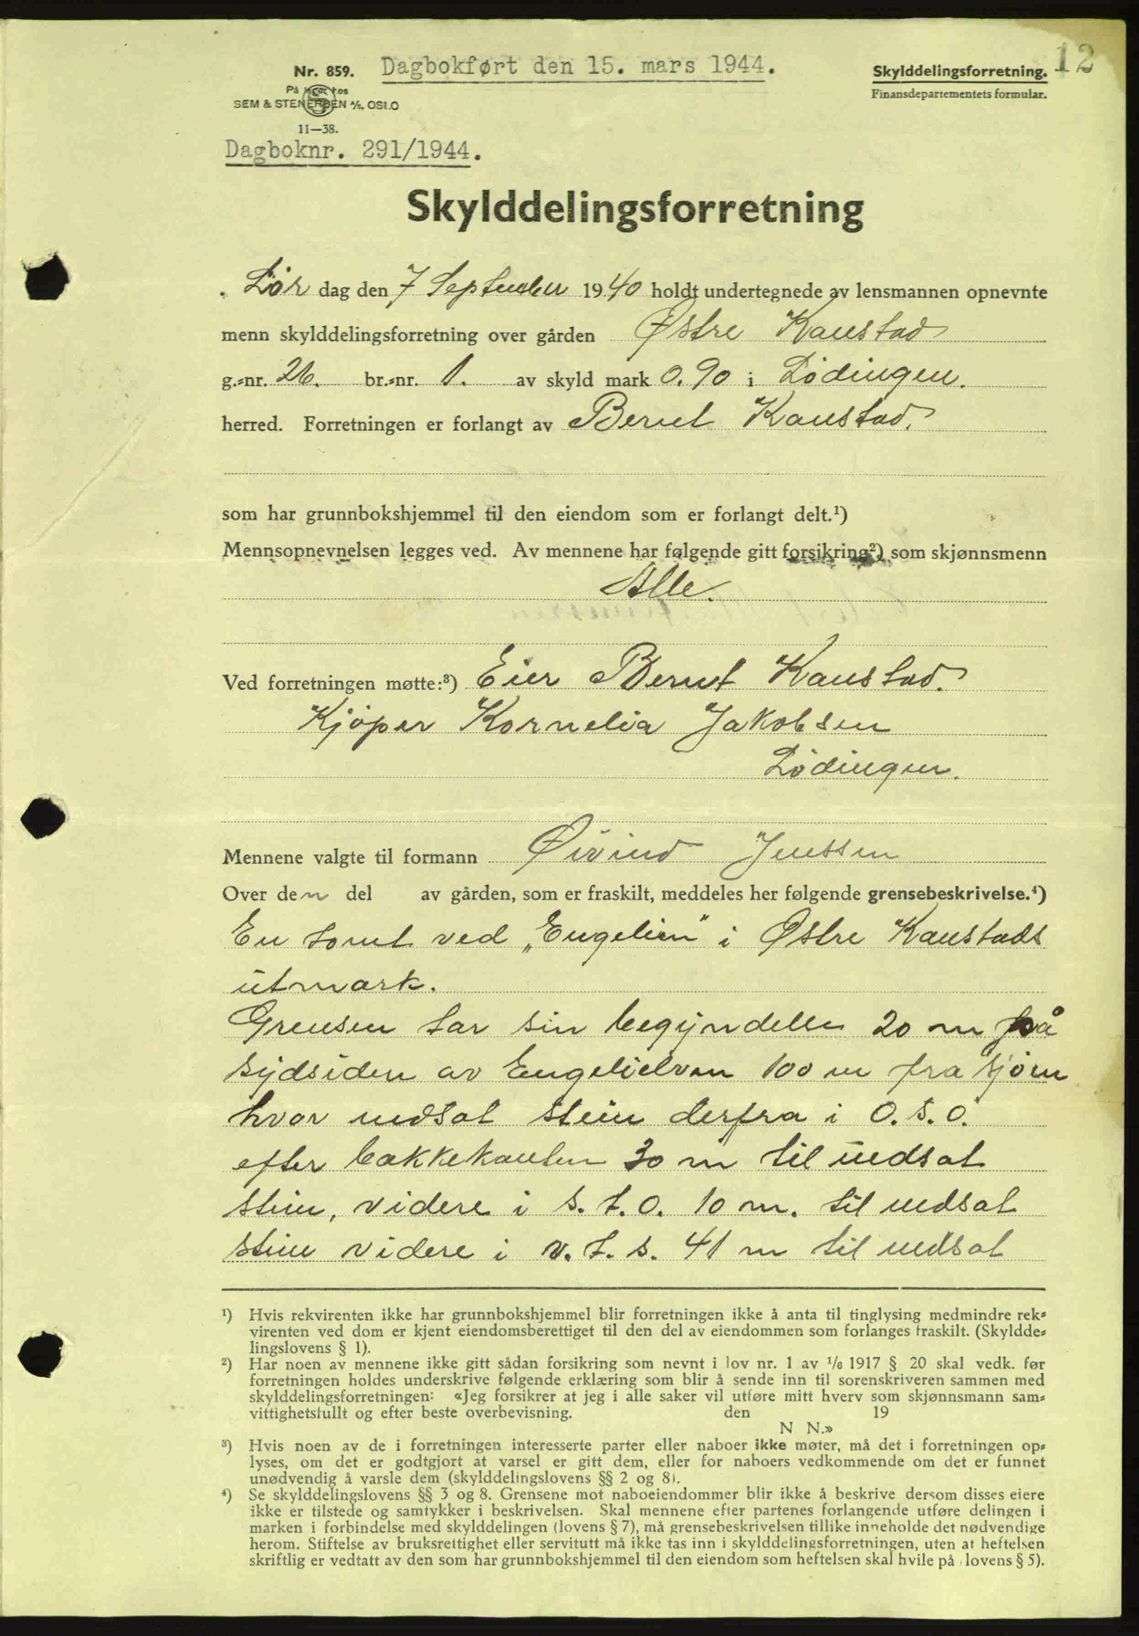 12
Nr. 859. Dagbokført den 15. mars 1944.
Skylddelingsforretning.
På lager hos
Finansdepartementets formular.
SEM & STENERSEN A/S, OSLO
11—38.
Dagboknr. 291/1944.
Skylddelingsforretning
Lør dag den 7 September 1940 holdt undertegnede av lensmannen opnevnte
menn skylddelingsforretning over gården Østre Kanstad
g.=nr. 26. br.=nr. 1. av skyld mark 0.90 i Lødingen.
herred. Forretningen er forlangt av Bernt Kanstad.
som har grunnbokshjemmel til den eiendom som er forlangt delt.¹)
Mennsopnevnelsen legges ved. Av mennene har følgende gitt forsikring²) som skjønnsmenn
Alle.
Ved forretningen møtte:³) Eier Bernt Kanstad.
Kjøper Kornelia Jakobsen
Lødingen.
Mennene valgte til formann Øivind Jenssen
Over den del av gården, som er fraskilt, meddeles her følgende grensebeskrivelse.⁴)
En tomt ved „Engelien" i Østre Kanstads
utmark.
Grensen tar sin begyndelse 20 m på
sydsiden av Engelielven 100 m fra sjøen
hvor nedsat stein derfra i O.S.O.
efter bakkekanten 30 m til nedsat
stein, videre i S.t.O. 10 m. til nedsat
stein videre i v.t.s. 41 m til nedsat
¹) Hvis rekvirenten ikke har grunnbokshjemmel blir forretningen ikke å anta til tinglysing medmindre rek=
virenten ved dom er kjent eiendomsberettiget til den del av eiendommen som forlanges fraskilt. (Skyldde=
lingslovens § 1).
²) Har noen av mennene ikke gitt sådan forsikring som nevnt i lov nr. 1 av 1/6 1917 § 20 skal vedk. før
forretningen holdes underskrive følgende erklæring som blir å sende inn til sorenskriveren sammen med
skylddelingsforretningen: «Jeg forsikrer at jeg i alle saker vil utføre mitt hverv som skjønnsmann sam=
vittighetsfullt og efter beste overbevisning. den 19
N N.»
³) Hvis noen av de i forretningen interesserte parter eller naboer ikke møter, må det i forretningen op=
lyses, om det er godtgjort at varsel er gitt dem, eller for naboers vedkommende om det er funnet
unødvendig å varsle dem (skylddelingslovens §§ 2 og 8).
⁴) Se skylddelingslovens §§ 3 og 8. Grensene mot naboeiendommer blir ikke å beskrive dersom disses eiere
ikke er tilstede og samtykker i beskrivelsen. Skal mennene efter partenes forlangende utføre delingen i
marken i forbindelse med skylddelingen (lovens § 7), må grensebeskrivelsen tillike inneholde det nødvendige
herom. Stiftelse av bruksrettighet eller servitutt må ikke tas inn i skylddelingsforretningen, uten at heftelsen
skriftlig er vedtatt av den som har grunnbokshjemmel til den eiendom som heftelsen skal hvile på (lovens § 5).